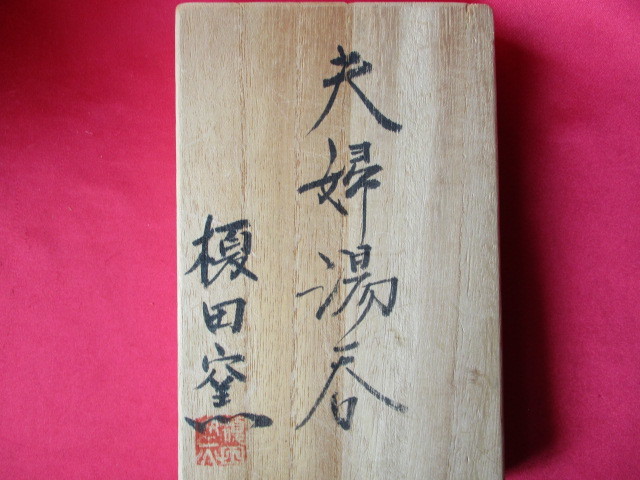 夫婦湯呑
榎田窯